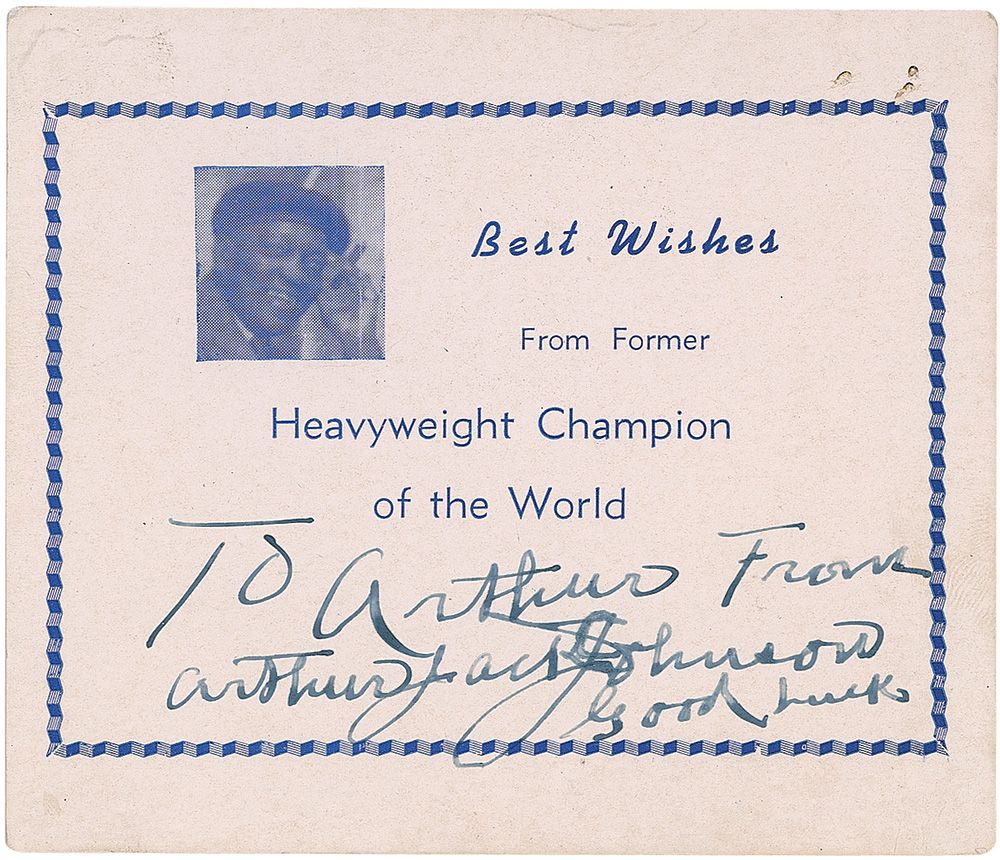 Best Wishes
From Former
Heavyweight Champion
of the World
To Arthur From
Arthur Jack Johnson
Good Luck